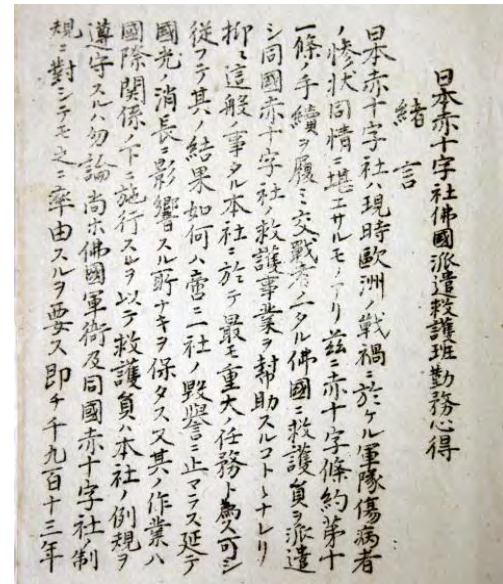 日本赤十字社佛國派遣救護班勤務心得
緒言
日本赤十字社ハ現時歐洲ノ戰禍ニ於ケル軍隊傷病者
ノ慘状同情ニ堪エサルモノアリ茲ニ赤十字條約第十
一條ノ手續ヲ履ミ交戰者ノ一タル佛國ニ救護員ヲ派遣
シ同國赤十字社ノ救護事業ヲ幇助スルコトヽナレリ
抑モ這般ノ事タル本社ニ於テ最モ重大ノ任務ト為ス可シ
從フテ其ノ結果如何ハ啻ニ社ノ毀譽ニ止マラス延テ
國光ノ消長ニ影響スル所ナキヲ保タス又其ノ作業ハ
國際関係ノ下ニ施行スルヲ以テ救護員ハ本社ノ例規ヲ
遵守スルハ勿論尚ホ佛國軍衙及同國赤十字社ノ制
規ニ對シテモ之ニ率由スルヲ要ス即チ千九百十三年